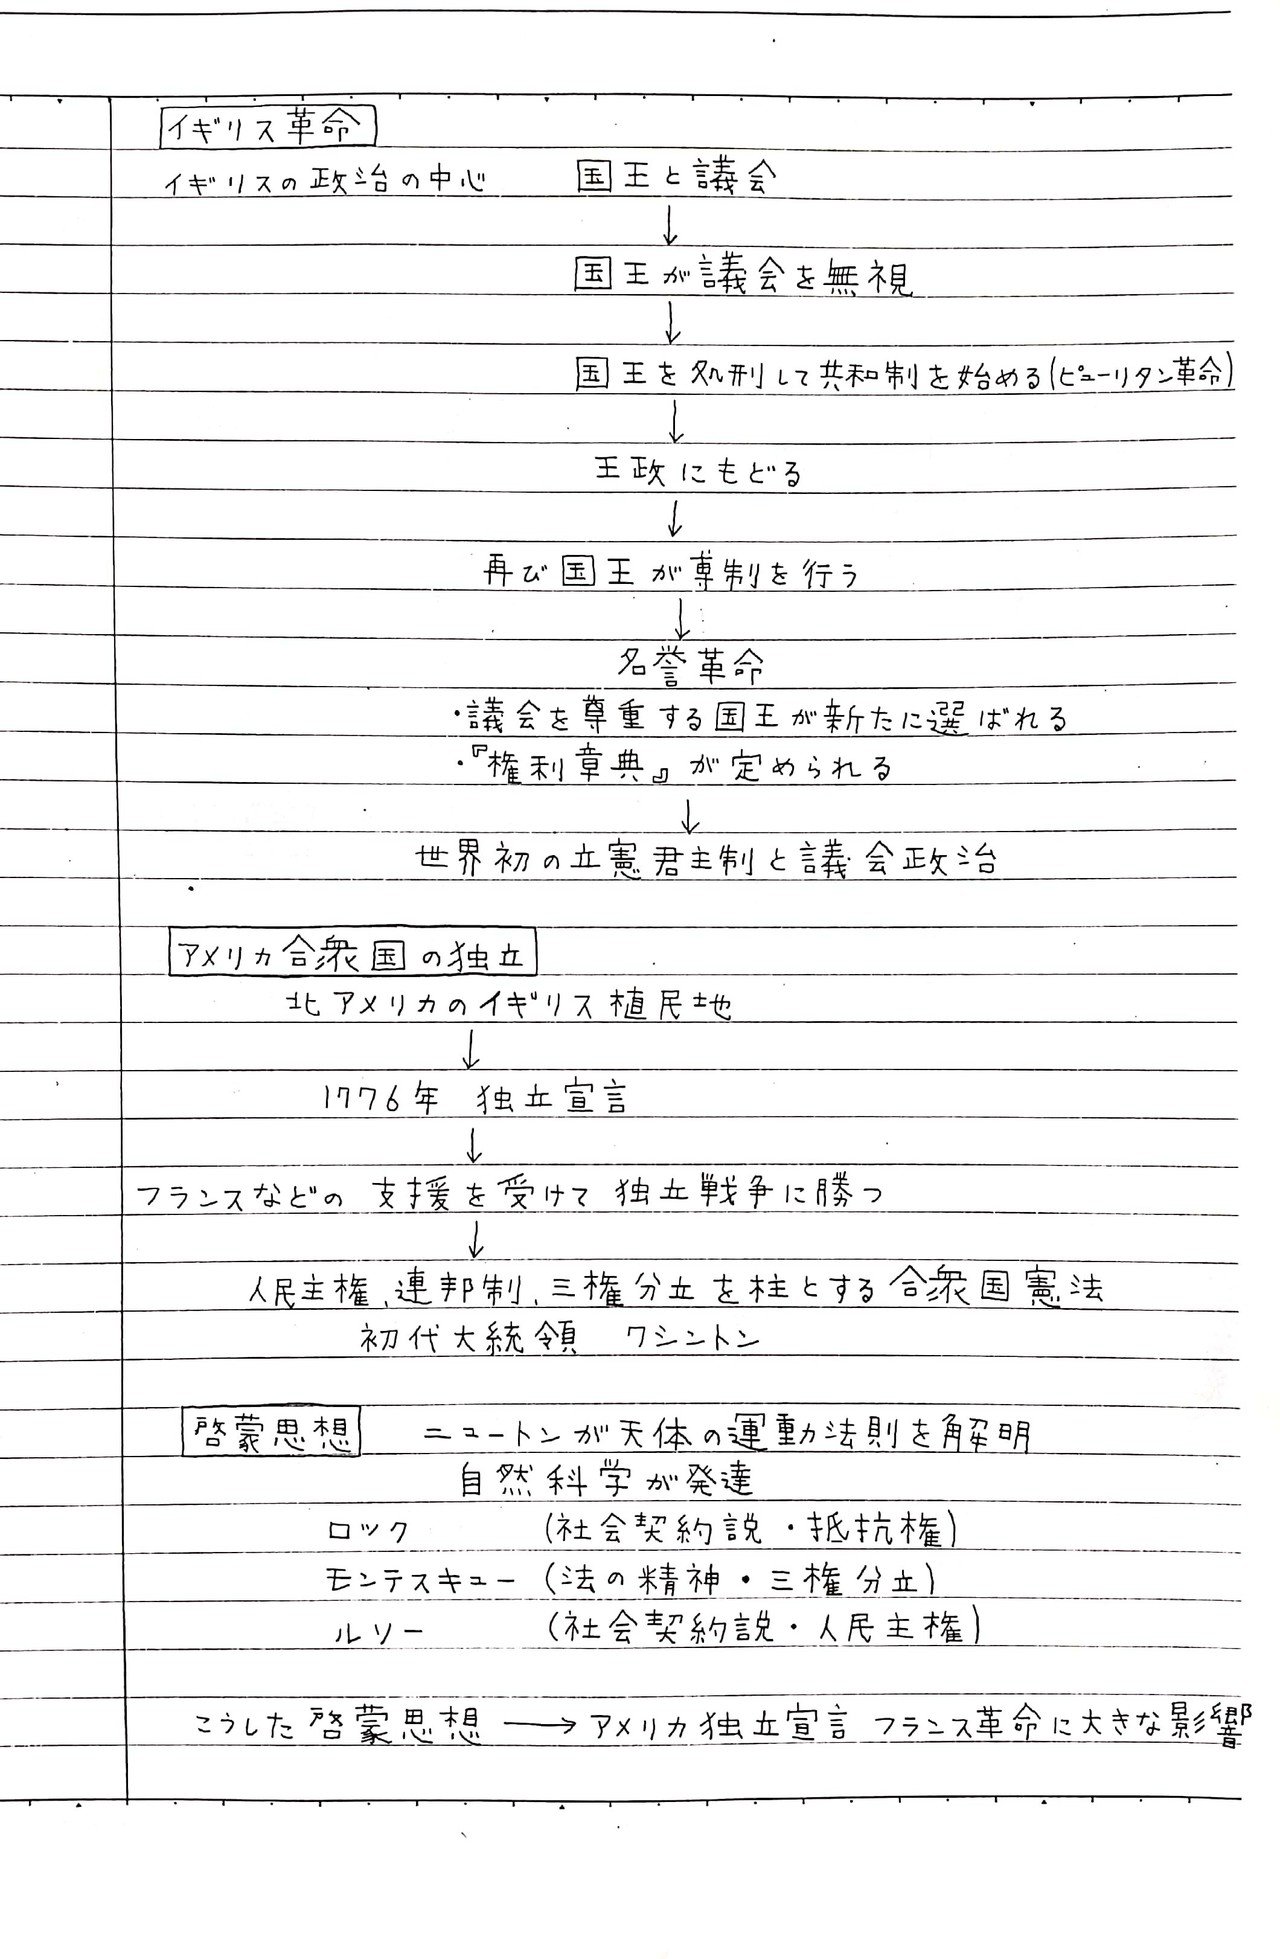 イギリス革命
イギリスの政治の中心 国王と議会
↓
国王が議会を無視
↓
国王を処刑して共和制を始める(ピューリタン革命)
↓
王政にもどる
↓
再び国王が専制を行う
↓
名誉革命
・議会を尊重する国王が新たに選ばれる
・『権利章典』が定められる
↓
世界初の立憲君主制と議会政治
アメリカ合衆国の独立
北アメリカのイギリス植民地
↓
1776年 独立宣言
↓
フランスなどの支援を受けて独立戦争に勝つ
↓
人民主権、連邦制、三権分立を柱とする合衆国憲法
初代大統領 ワシントン
啓蒙思想 ニュートンが天体の運動法則を解明
自然科学が発達
ロック (社会契約説・抵抗権)
モンテスキュー (法の精神・三権分立)
ルソー (社会契約説・人民主権)
こうした啓蒙思想 → アメリカ独立宣言 フランス革命に大きな影響